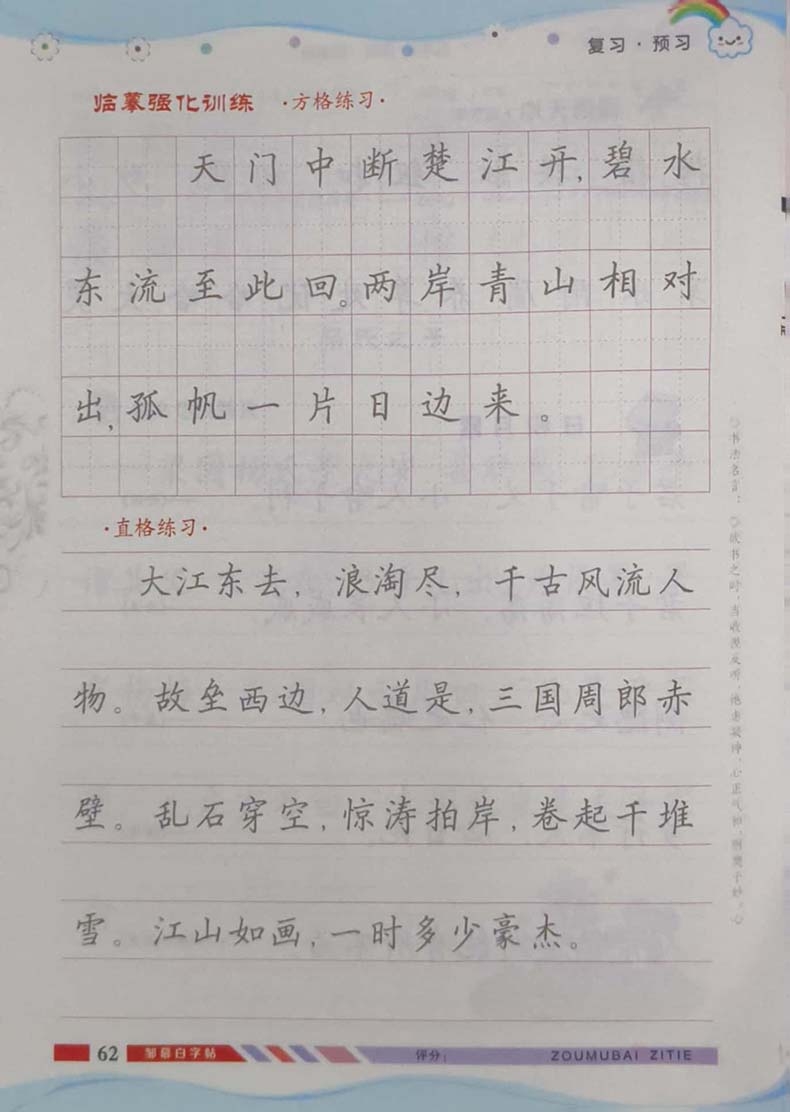 复习·预习
临摹强化训练 ·方格练习·
天门中断楚江开,碧水
东流至此回。两岸青山相对
出,孤帆一片日边来。
·直格练习·
大江东去，浪淘尽，千古风流人
物。故垒西边，人道是，三国周郎赤
壁。乱石穿空，惊涛拍岸，卷起千堆
雪。江山如画，一时多少豪杰。
◎书法名言：◎欲书之时，当收视反听，绝虑凝神，心正气和，则契于妙。心
62 邹慕白字帖 评分： ZOUMUBAI ZITIE